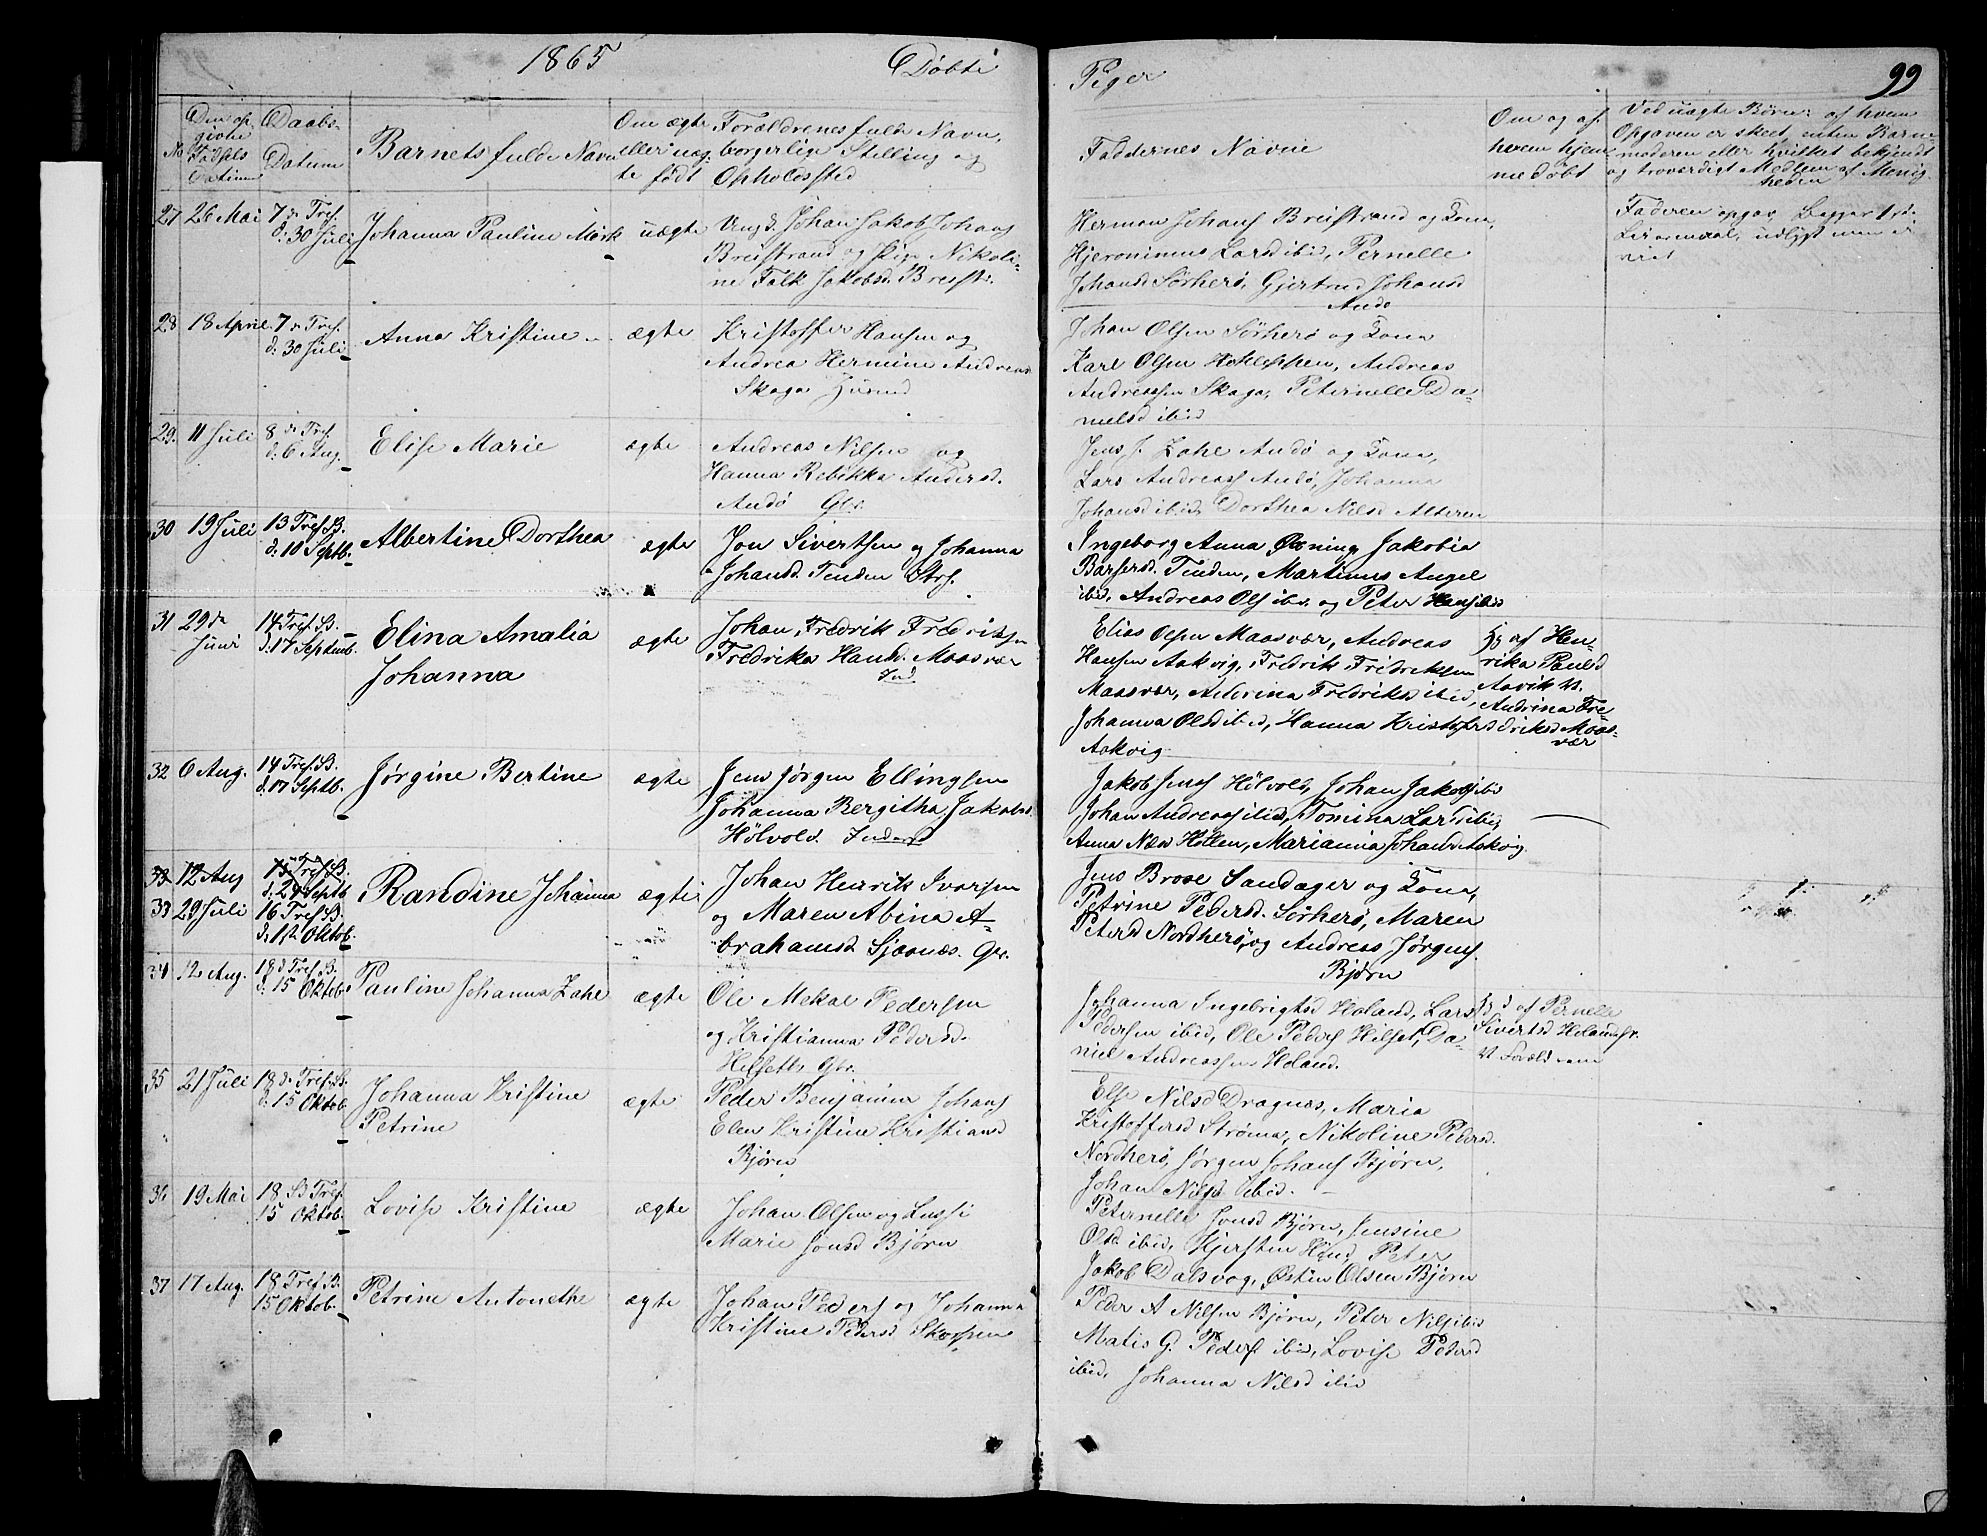 1865 Døbte Piger 99
No Den opgivne Fødsels Datum
Daabs-Datum
Barnets fulde Navn
Om ægte eller uægte født
Forældrenes fulde Navn, borgerlige Stilling og Opholdssted
Faddernes Navne
Om og af hvem hjemmedøbt
Ved uægte Børn: af hvem Opgaven er skeet, enten Barnemoderen eller hvilket bekjendt og troværdigt Medlem af Menigheden
27 26 Mai 7 S. Tref. d. 30 Juli Johanna Pauline Mörk uægte
Ungk. Johan Jakob Johans
Breistrand og Pige Nikoli-
ne Falk Jakobsd. Breistr.
Herman Johans Breistrand og Kona,
Hjeronimus Lars ibid, Pernelle
Johansd Sørherø, Gjertrud Johansd
Andø
Faderen opgav Begges 1ste
28 18 April 7 S. Tref. d. 30 Juli Anna Kristine ægte
Kristoffer Hansen og
Andrea Hermine Andreasd
Skaga
Johan Olsen Sørherø og Kona
Karl Olsen, Andreas
Andreassen Skaga, Peternelle Da-
nielsd ibid
29. 11 Juli 8 S. Tref. d. 6 Aug. Elise Marie ægte
Andreas Nilsen og
Hanna Rebekka Andersd.
Andø Gbr.
Jens J. Zahl Andø og Kona,
Lars Andreass Andø, Johanna
Johansd ibid, Dorthea Nilsd Alteren
30 19 Juli 13 Tref. S. d. 10 Septb. Albertine Dorthea ægte
Jon Sivertsen og Johanna
Johansd. Tenden Strf.
Ingeborg Anna Jakobia
Tenden, Martinus Angel
ibid, Andreas Ols ibid og Peter Hans ibid
31 29de Juni 14 Tref. S. d. 17 Septemb. Elina Amalia
Johanna ægte
Johan Fredrik Fredriksen
Fredrika Hansd. Maasvær
Ind
Elias Olsen Maasvær, Andreas
Hansen Aakvig, Fredrik Fridriksen
Maasvær, Andrina Fredriksd ibid,
Johanna Olsd ibid, Hanna Kristofersd
Aakvig
Hj af Hen-
rika Paulsd
Aavik V.
Andrina Fre-
driksd Maas-
vær
32 6 Aug. 14 Tref. S. d. 17 Septb. Jørgine Bertine ægte
Jens Jørgen Ellingsen
Johanna Bergitha Jakobsd
Hölvold. Inderst
Jakob Jens Hölvold, Johan Jakobs ibid
Johan Andreass ibid, Tomina Larsd ibid,
Anna Nilsd Hollen, Marianna Johansd Aakvig
33 12 Aug 15 Tref. S. d. 24 Septb
33 29 Juli 16 Tref. S. d. 1ste Oktob. Randine Johanna ægte
Johan Henrik Ivarsen
og Maren Abina A-
brahamsd Sjaanæs. Gbr.
Jens Brose Sandager og Kona,
Petrine Pedersd. Sørherø, Maren
Petersd Nordherø, og Andreas Jørgens.
Bjørn
34 12 Aug. 18 S. Tref. S. d. 15 Oktob. Pauline Johanna Zahl ægte
Ole Mekal Pedersen
og Kristianna Pedersd.
Helsett, Gbr.
Johanna Ingebrigtsd Holand, Lars
Pedersen ibid, Ole Peders Hilset, Da-
niel Andreassen Holand.
Hjd af Pernelle
Sivertsd Holand
35 21 Juli 18 S. Tref. S. d. 15 Oktob Johanna Kristine
Petrine ægte
Peder Benjamin Johans
Elen Kristine Kristiansd
Bjørn
Else Nilsd Dragnæs, Maria
Kristoffersd Strøma, Nikoline Pedersd.
Nordherø, Jørgen Johans Bjørn,
Johan Nilss ibid.
36 19 Mai 18 S. Tref. 15 Oktob. Lovise Kristine ægte
Johan Olsen og Lussi
Marie Jonsd Bjørn
Peternelle Jonsd Bjørn, Jensine
Olsd. ibid, Kjersten Hansd, Peter
Jakob Dalsvog, Østen Olsen Bjørn
37 17 Aug. 18 Tref. S. 15 Oktob. Petrine Antonethe ægte
Johan Peders og Johanna
Kristine Pedersd Skorpen
Peder A Nilsen Bjørn, Peter Nils ibid
Matis G. Peders ibid, Lovise Petersd
ibid, Johanna Nilsd ibid